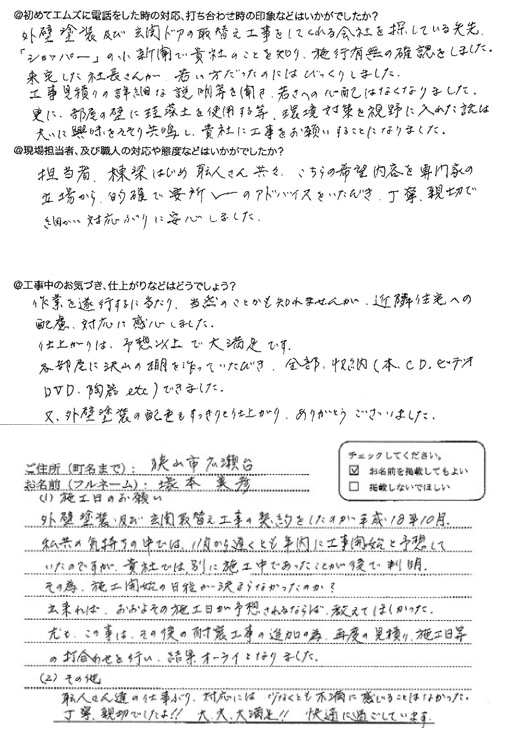 @初めてエムズに電話をした時の対応、打ち合わせ時の印象などはいかがでしたか?
外壁塗装及び玄関ドアの取替え工事をしてくれる会社を探している矢先、
「ショッパー」の小新聞で貴社のことを知り、施行有無の確認をしました。
来宅した社長さんが、若い方だったのにはびっくりしました。
工事見積りの詳細な説明等を聞き、若さへの心配はなくなりました。
更に、部屋の壁に珪藻土を使用する等、環境対策を視野に入れた話は
大いに興味をそそり共鳴し、貴社に工事をお願いすることになりました。
@現場担当者、及び職人の対応や態度などはいかがでしたか?
担当者、棟梁はじめ職人さん共々、こちらの希望内容を専門家の
立場から、的確で要所々のアドバイスをいただき、丁寧、親切で
細かい対応ぶりに安心しました。
@工事中のお気づき、仕上がりなどはどうでしょう?
作業を遂行するに当たり、当然のことかも知れませんが、近隣住宅への
配慮、対応に感心しました。
仕上がりは、予想以上で大満足です。
各部屋に沢山の棚を作っていただき、全部、収納(本、CD、ビデオ
DVD、陶器etc)できました。
又、外壁塗装の配色もすっきりと仕上がり、ありがとうございました。
チェックしてください。
☑ お名前を掲載してもよい
□ 掲載しないでほしい
ご住所(町名まで): 狭山市広瀬台
お名前(フルネーム): 塚本 美彦
(1) 施工日のお願い
外壁塗装、及び玄関取替え工事の契約をしたのが平成18年10月。
私共の気持ちの中では、11月から遅くとも年内に工事開始と予想して
いたのですが、貴社では別に施工中であったことが後で判明。
その為、施工開始の日程が決まらなかったのか?
出来れば、おおよその施工日が予想されるならば、教えてほしかった。
尤も、この事は、その後の耐震工事の追加の為、再度の見積り、施工日等
の打合わせを行い、結果オーライとなりました。
(2) その他
職人さん達の仕事ぶり、対応には少なくとも不満に感じることはなかった。
丁寧、親切でしたよ!! 大、大、大満足!! 快適に過ごしています。